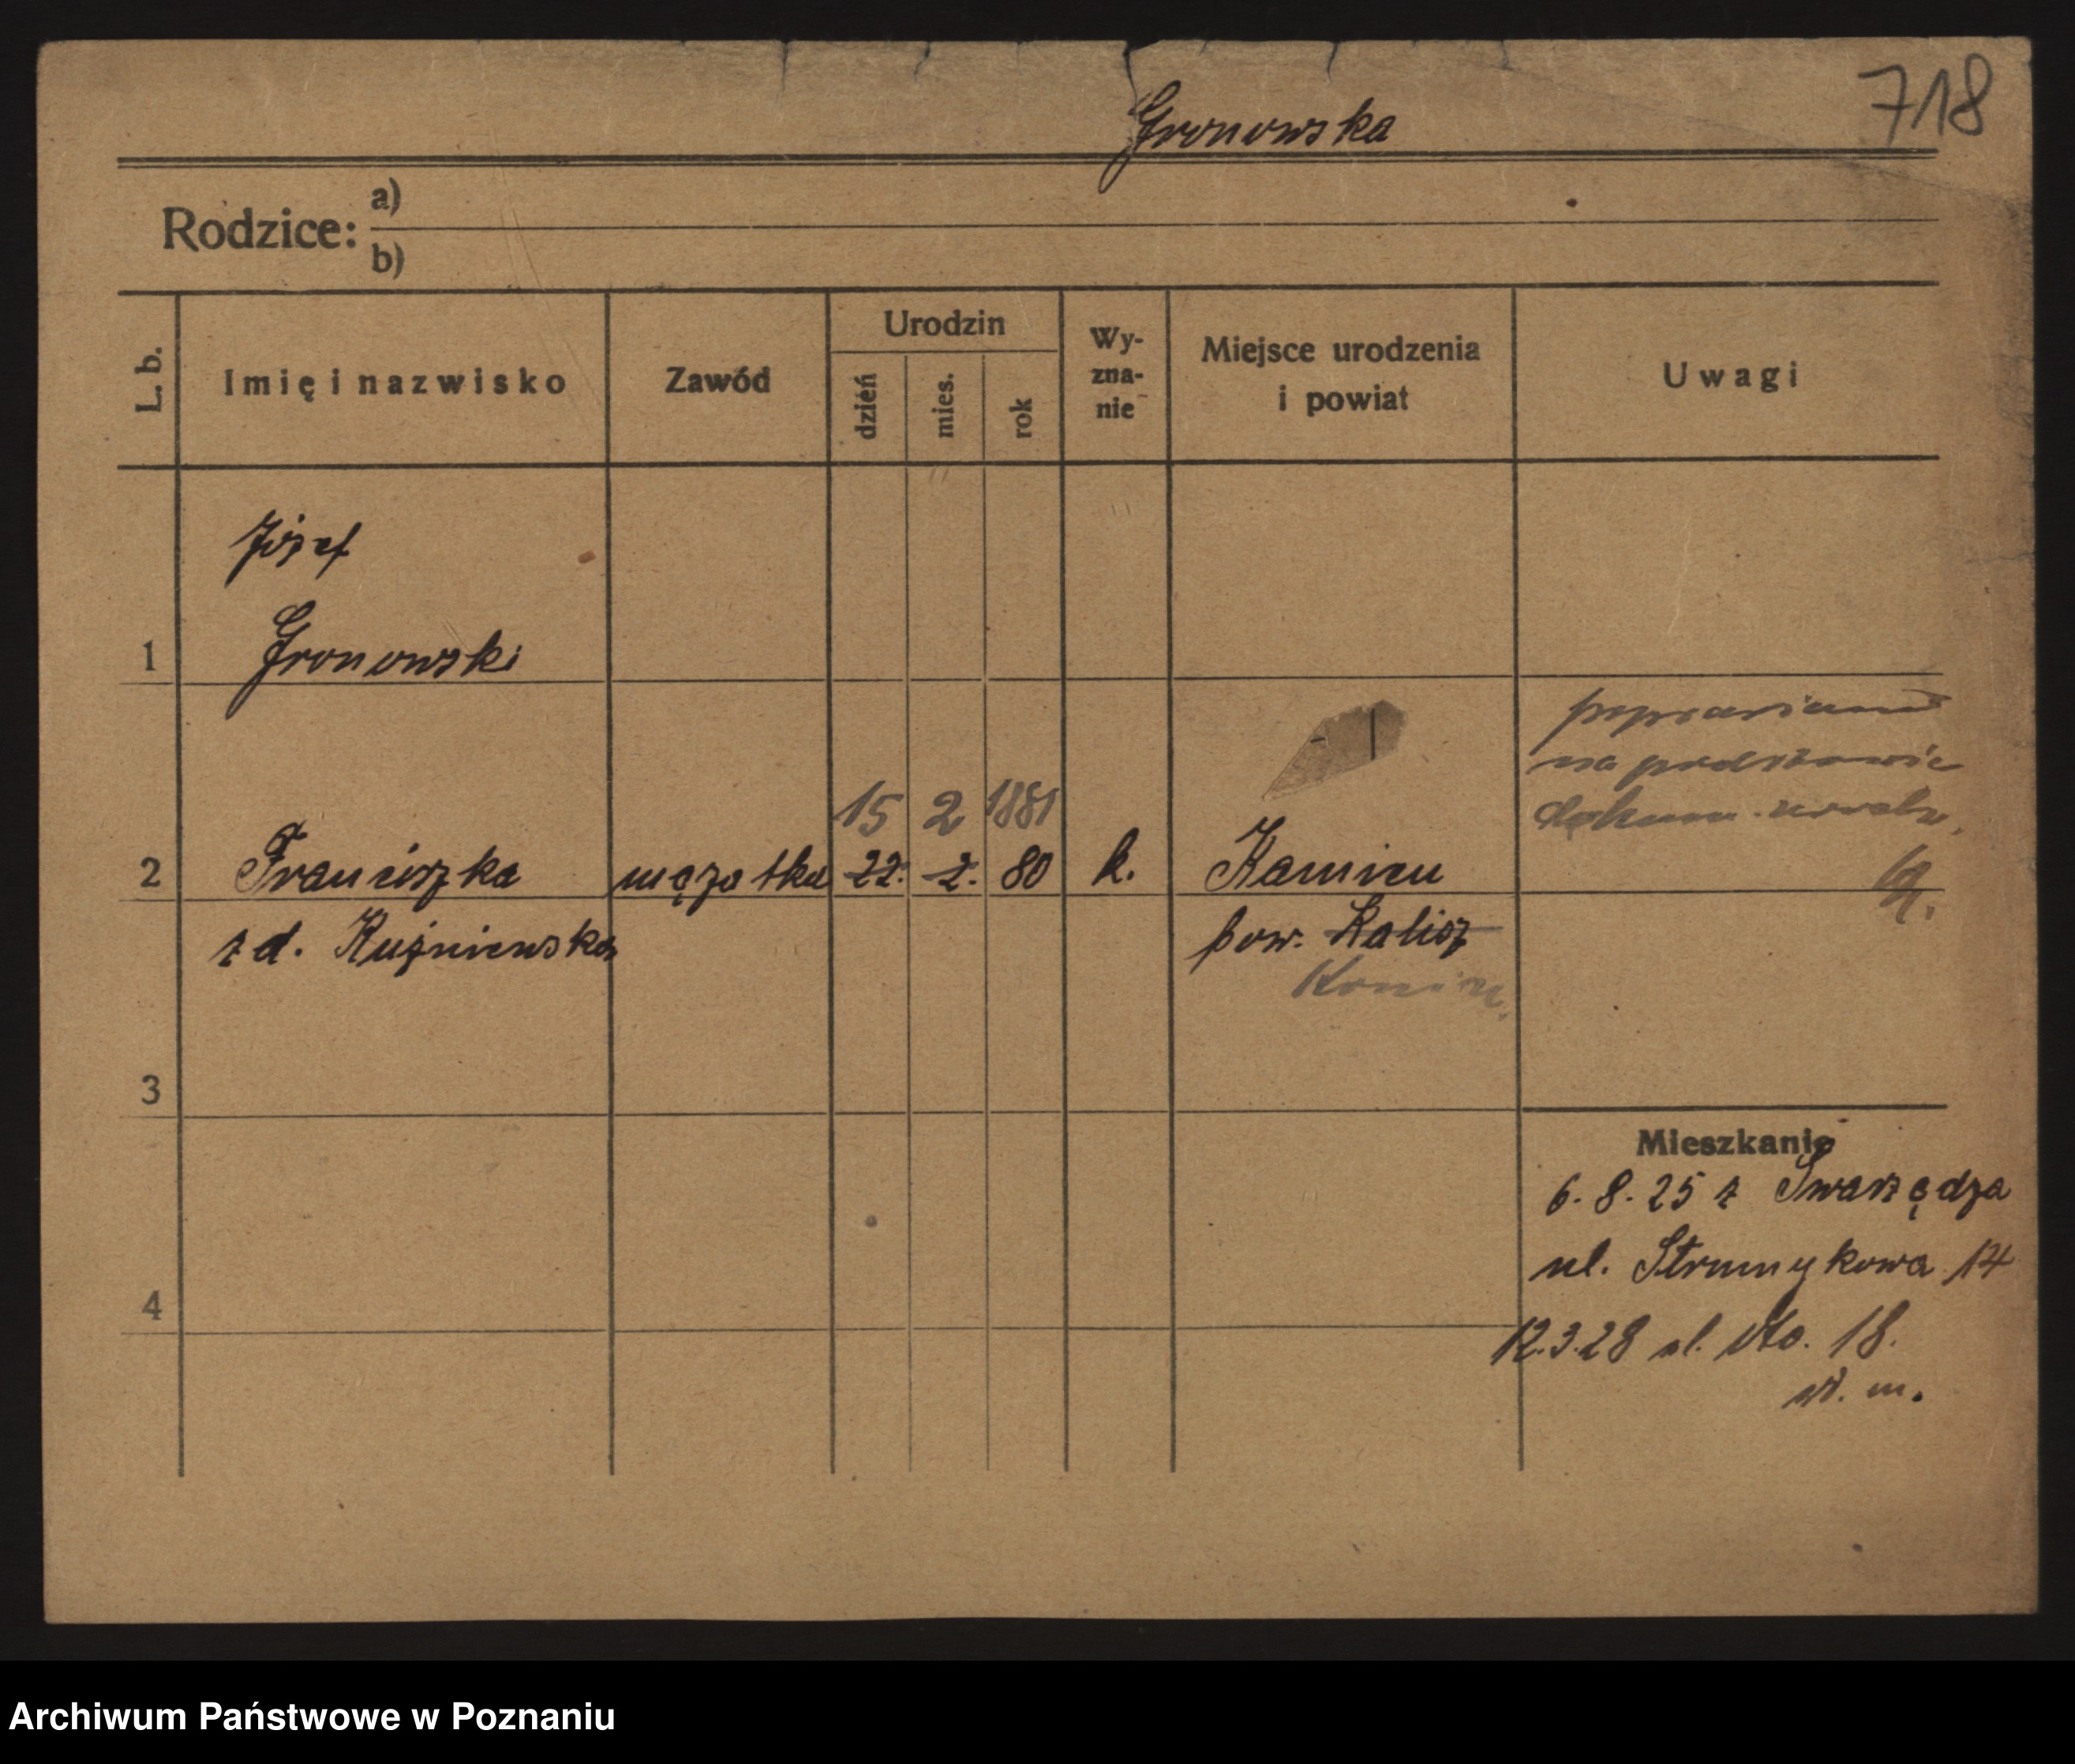 718
Gronowska
Rodzice: a)
b)
L. b.
Imię i nazwisko
Zawód
Urodzin
dzień
mies.
rok
Wy-
zna-
nie
Miejsce urodzenia
i powiat
Uwagi
Józef
1 Gronowski
poprawiono
na podstawie
dokum. urodz.
15 2 1881
2 Franciszka mężatka 22. 2. 80 k. Kamień
z d. Kuźniewska pow. Kalisz
Konin.
3
Mieszkanie
6. 8. 25 z Swarzędza
ul. Strumykowa 14
4
12.3.28 ul. 18.
w. m.
Archiwum Państwowe w Poznaniu